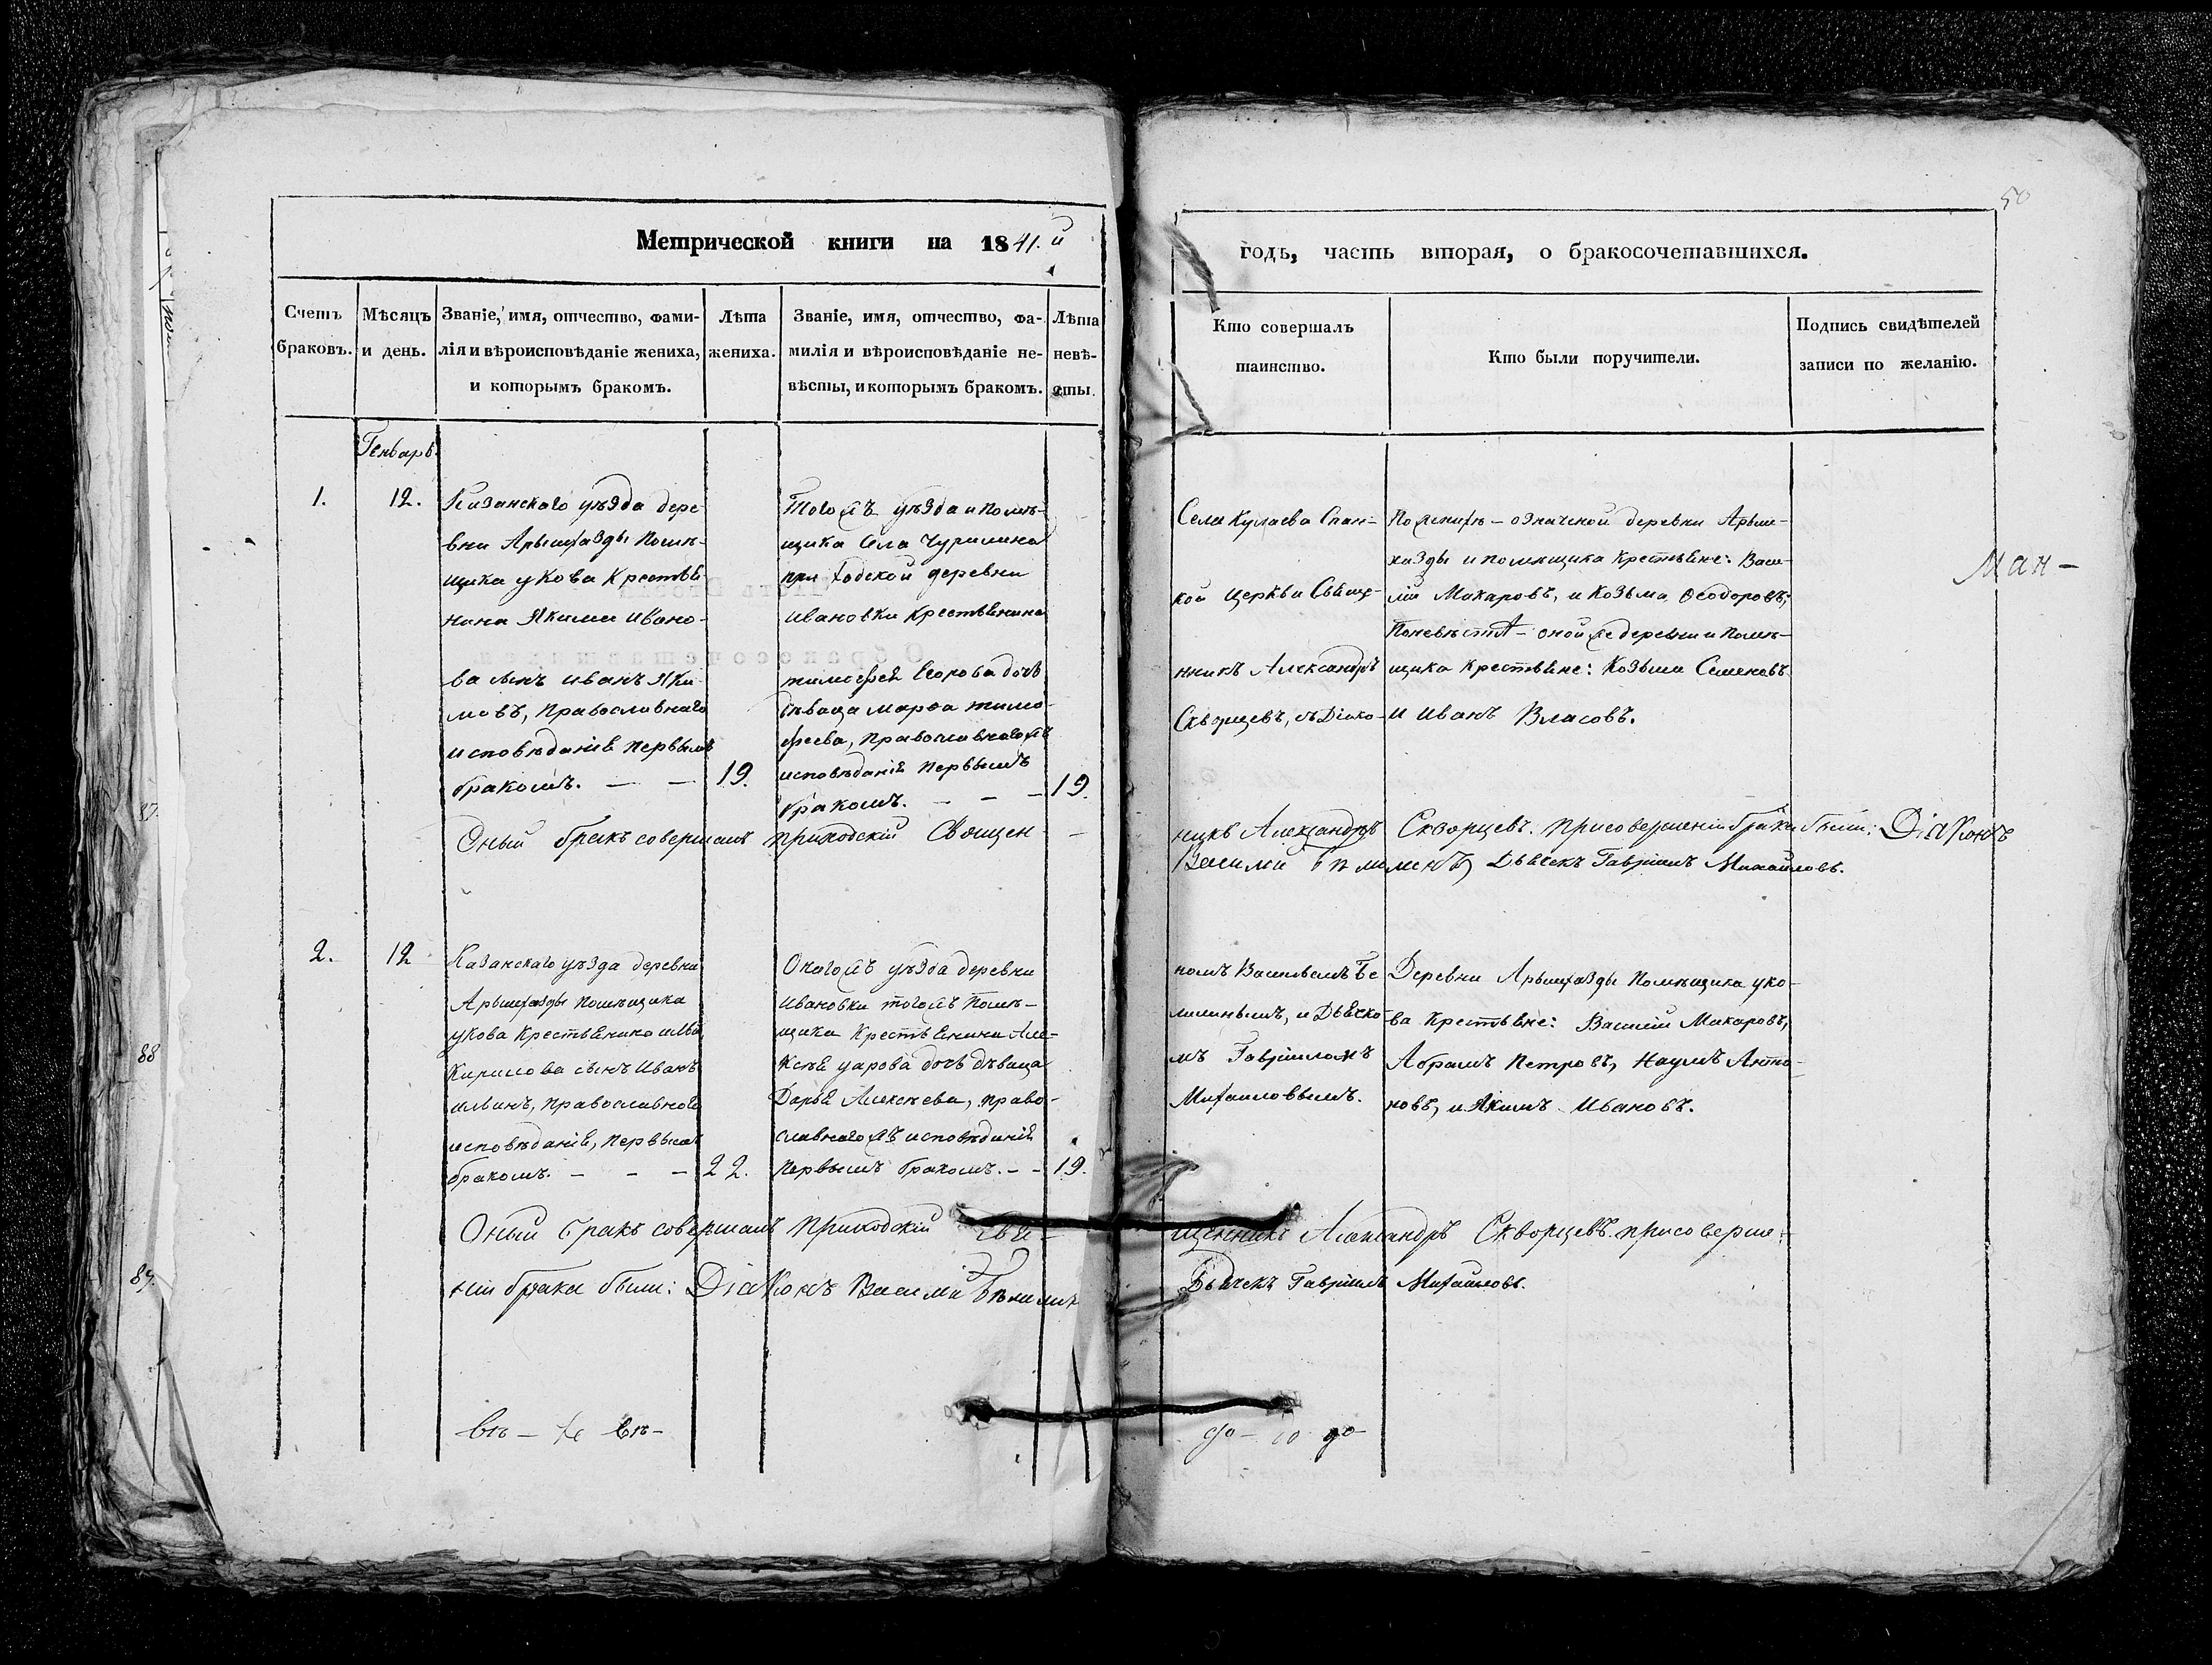 50
Метрической книги на 1841.й
годъ, часть вторая, о бракосочетавшихся.
Счетъ браковъ.
Мѣсяцъ и день.
Званіе, имя, отчество, фами-
лія и вѣроисповѣданіе жениха,
и которымъ бракомъ.
Лѣта
жениха.
Званіе, имя, отчество, фа-
милія и вѣроисповѣданіе не-
вѣсты, и которымъ бракомъ.
Лѣта
невѣ-
сты.
Кто совершалъ
таинство.
Кто были поручители.
Подпись свидѣтелей
записи по желанію.
Генварь
1.
12.
Казанскаго уѣзда дере-
вни Арышхазды помѣ-
щика укова крестьѣ-
нина Якима Ивано-
ва сынъ Иванъ Яки-
мовъ, православнаго
исповѣданіѣ первымъ
бракомъ. — —
19.
Тогожъ уѣзда и помѣ-
щика села Чурилина
приходской деревни
Ивановки крестьѣнина
тимофея дочь
дѣвица Марѳа тимо-
феева, православнагожъ
исповѣданіѣ первымъ
бракомъ. — — —
19.
Села Кулаева Спас-
кой церкви Свяще-
нникъ Александръ
Скворцевъ, съ Діако-
По женихѣ — означеной деревни Арыш-
хазды и помѣщика крестьѣне: Васи-
лій Макаровъ, и Козьма Ѳеодоровъ;
По невѣстѣ — оной же деревни и помѣ-
щика крестьѣне: Козьма Семеновъ
и Иванъ Власовъ.
Ман-
Оный бракъ совершалъ приходскій Священ-
никъ Александръ Скворцевъ. при совершеніи брака были: Діаконъ
Василій Дьячекъ Гавріилъ Михайловъ.
2.
12
Казанскаго уѣзда деревни
Арышхазды помѣщика
укова крестьѣнина Ильи
Кирилова сынъ Иванъ
Ильинъ, православнаго
исповѣданіѣ, первымъ
бракомъ. — — —
22.
Оногожъ уѣзда деревни
Ивановки тогожъ помѣ-
щика крестьѣнина Але-
ксѣя дочь дѣвица
Дарья Алексѣева, право-
славнагожъ исповѣданіѣ
первымъ бракомъ. — —
19.
номъ Васильемъ Бе-
лилинымъ, и Дьячко-
мъ Гавріиломъ
Михаиловымъ.
Деревни Арышхазды помѣщика уко-
ва крестьѣне: Василій Макаровъ,
Абрамъ Петровъ, Наумъ Анто-
новъ, и Якимъ Ивановъ.
Оный бракъ совершалъ приходскій Свя-
щенникъ Александръ Скворцевъ. при соверше-
ніи брака были: Діаконъ Василій
Дьячекъ Гавріилъ Михайловъ.
87.
88
89.